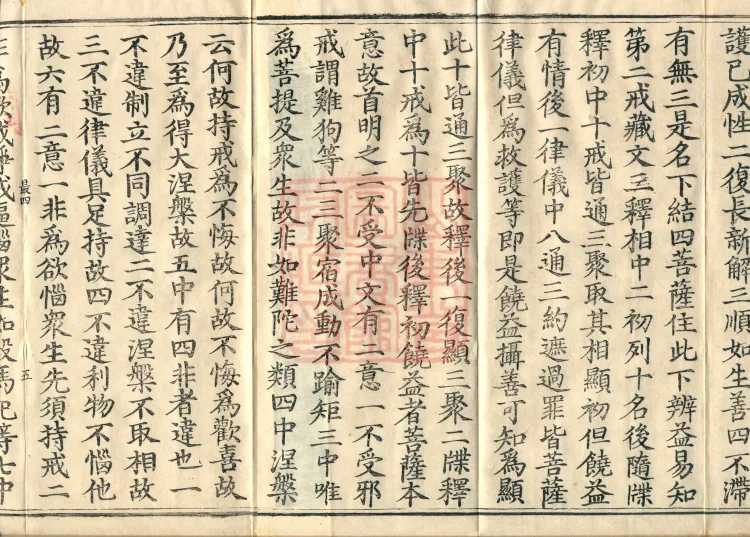 護已成性二復長新解三順如生善四不滯
有無三是名下結四菩薩住此下辨益易知
第二戒藏文三釋相中二初列十名後隨牒
釋初中十戒皆通三聚取其相顯初但饒益
有情後一律儀中八通三約遮過罪皆菩薩
律儀但爲救護等即是饒益攝善可知爲顯
此十皆通三聚故釋後一復顯三聚二牒釋
中十戒爲十皆先牒後釋初饒益者菩薩本
意故首明之二不受中文有二意一不受邪
戒謂雞狗等二三聚宿成動不踰矩三中唯
爲菩提及衆生故非如難陀之類四中涅槃
云何故持戒爲不悔故何故不悔爲歡喜故
乃至爲得大涅槃故五中有四非者違也一
不違制立不同調達二不違涅槃不取相故
三不違律儀具足持故四不違利物不惱他
故六有二意一非爲欲惱衆生先須持戒二
最四 五